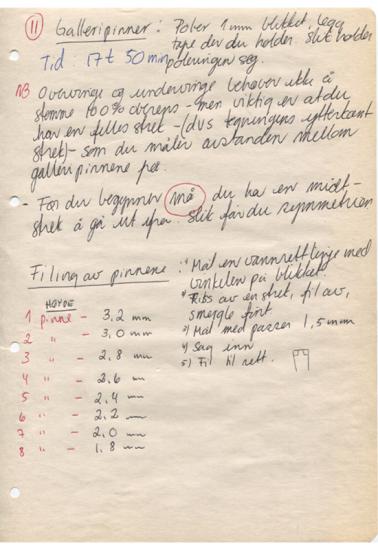 11 Galleripinner: Poler 1 mm blikket, legg
tape der du holder slik holder
Tid: 17 t 50 min poleringen seg.
NB Overvinge og undervinge behøver ikke å
stemme 100% overens - men viktig er at du
har en felles strek - (dvs tegningens ytterkant
strek) - som du måler avstanden mellom
galleripinnene på.
- Før du begynner må du ha en midt-
strek å gå ut ifra. Slik får du symmetrien
Filing av pinnene : 1) Mål en vannrett linje med
vinkelen på blikket.
2) Riss av en strek, fil av,
smergle fint
3) Mål med passer 1,5 mm
4) Sag inn
5) Fil til rett.
HØYDE
1 pinne - 3,2 mm
2 " - 3,0 mm
3 " - 2,8 mm
4 " - 2,6 mm
5 " - 2,4 mm
6 " - 2,2 mm
7 " - 2,0 mm
8 " - 1,8 mm